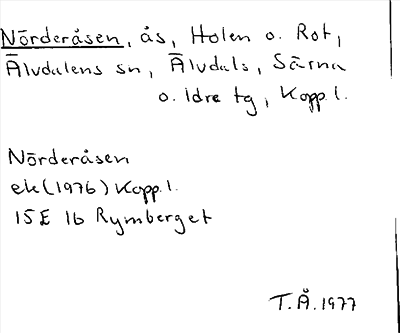 Nōrderåsen, ås, Holen o. Rot,
Älvdalens sn, Älvdals, Särna
o. Idre tg, Kopp. l.
Nōrderåsen
ek (1976) Kopp. l.
15E 1b Rymberget
T.Å. 1977